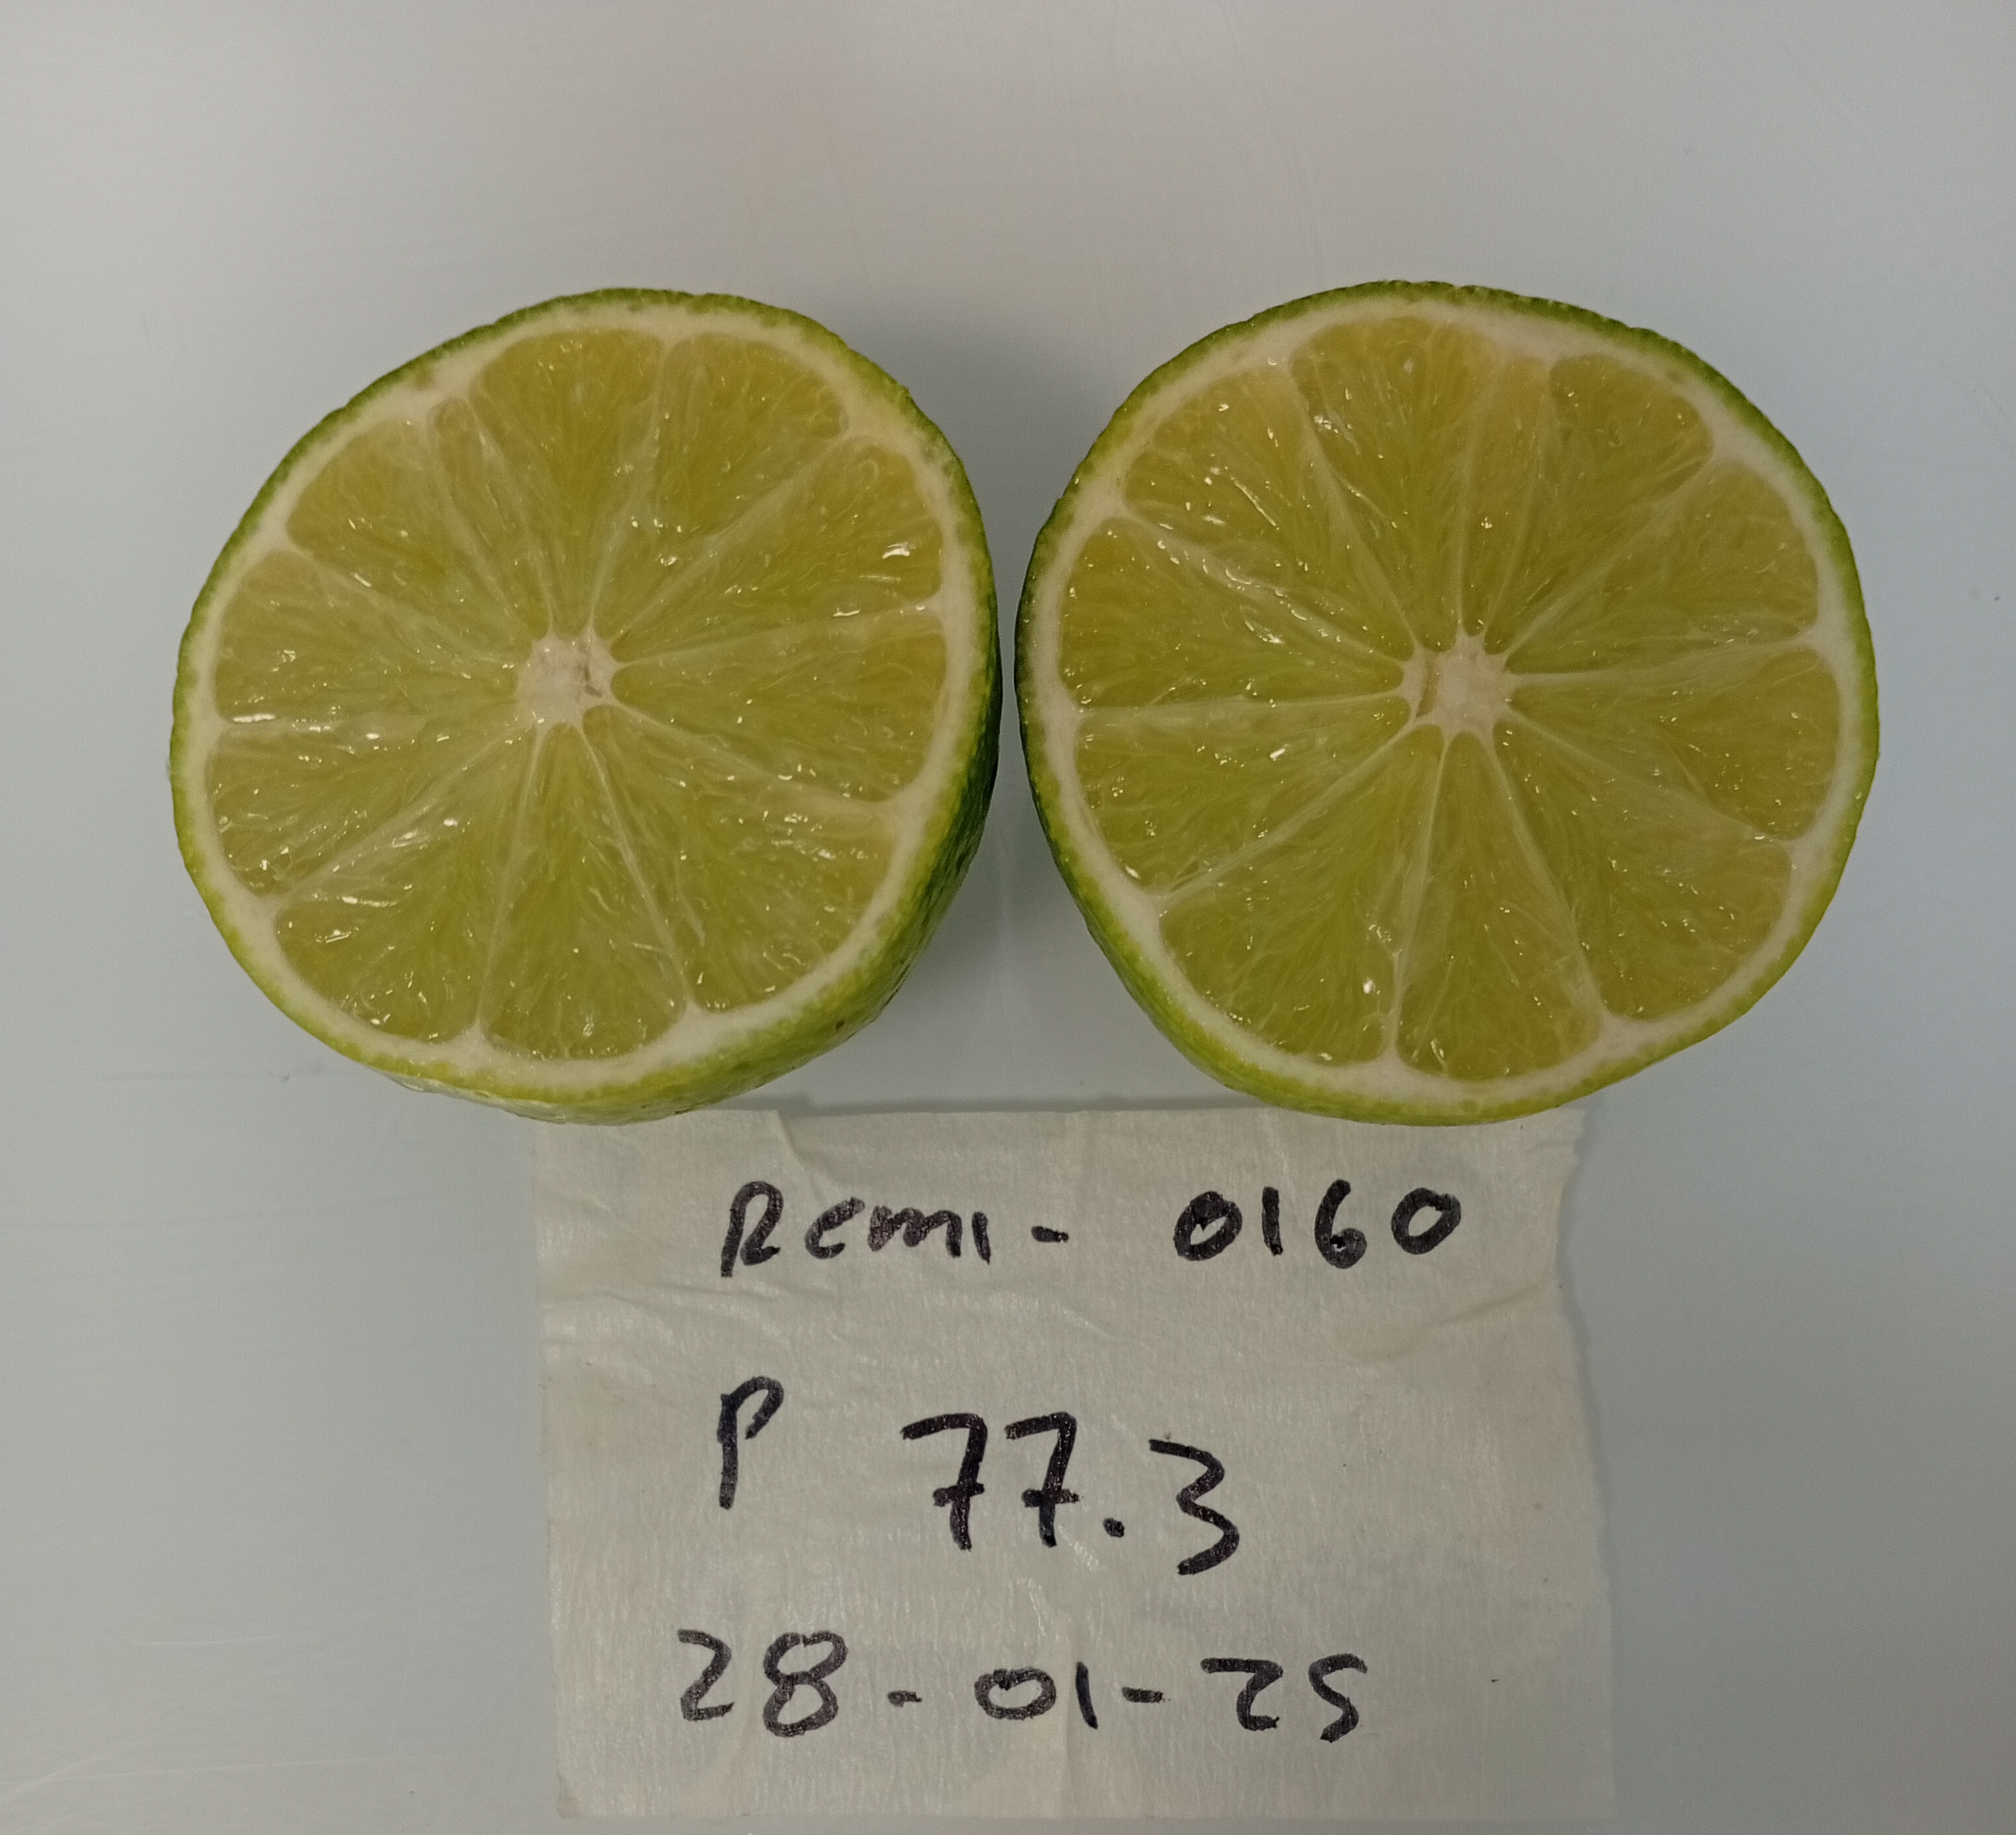 Remi - 0160
P 77.3
28-01-25